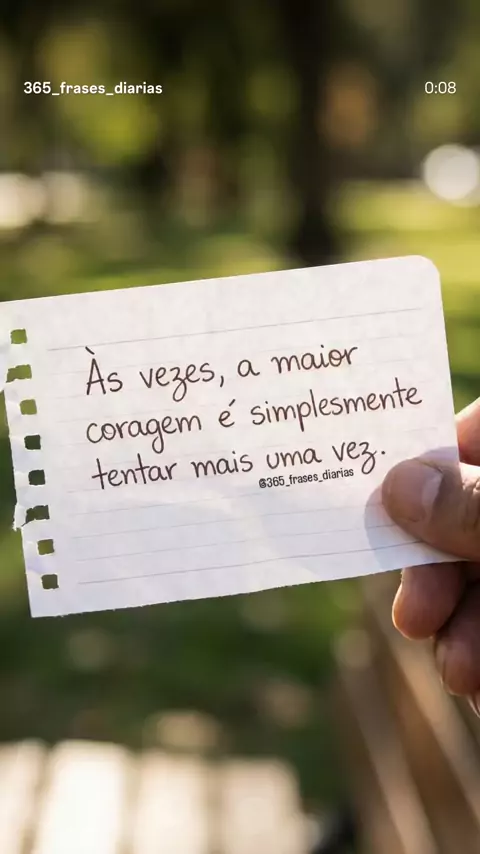 365_frases_diarias
0:08
Às vezes, a maior
coragem é simplesmente
tentar mais uma vez.
@365_frases_diarias